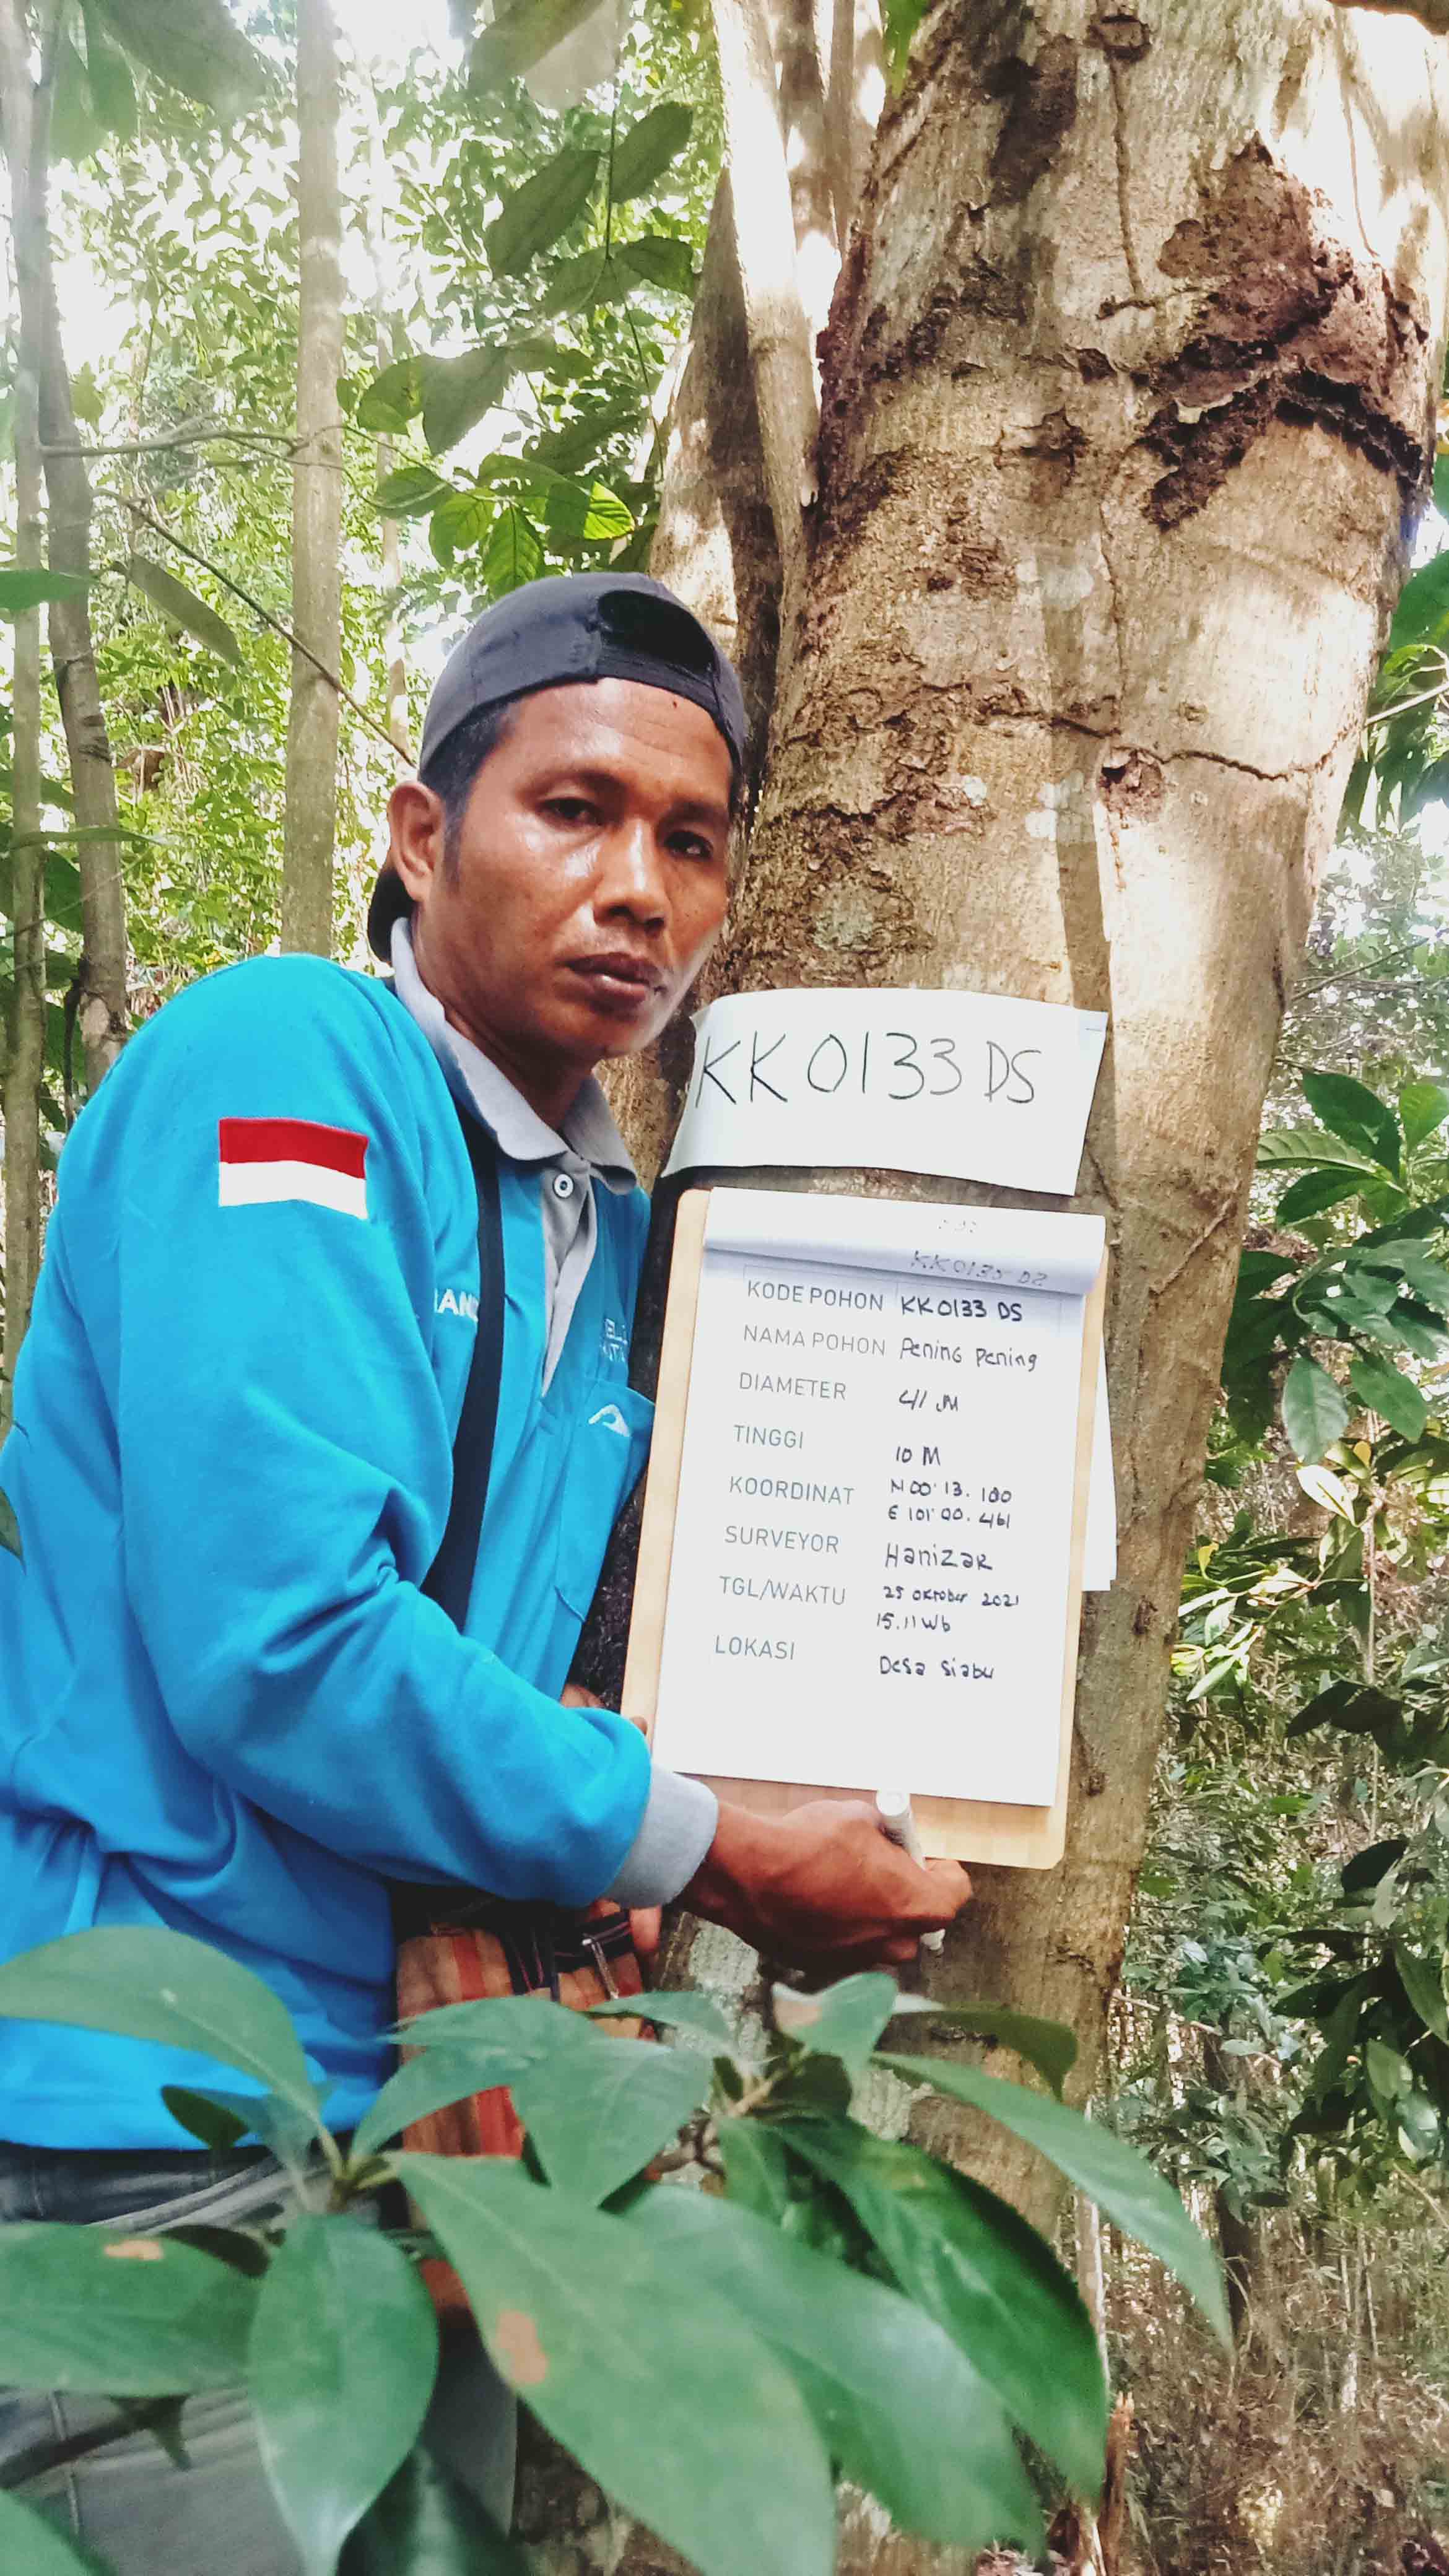 KK0133 DS
KK0135 DS
KODE POHON KK0133 DS
NAMA POHON Pening Pening
DIAMETER 41 M
TINGGI 10 M
KOORDINAT N 00° 13. 180
E 101° 00. 461
SURVEYOR HaniZaR
TGL/WAKTU 25 oktober 2021
15.11 Wb
LOKASI Desa Siabu